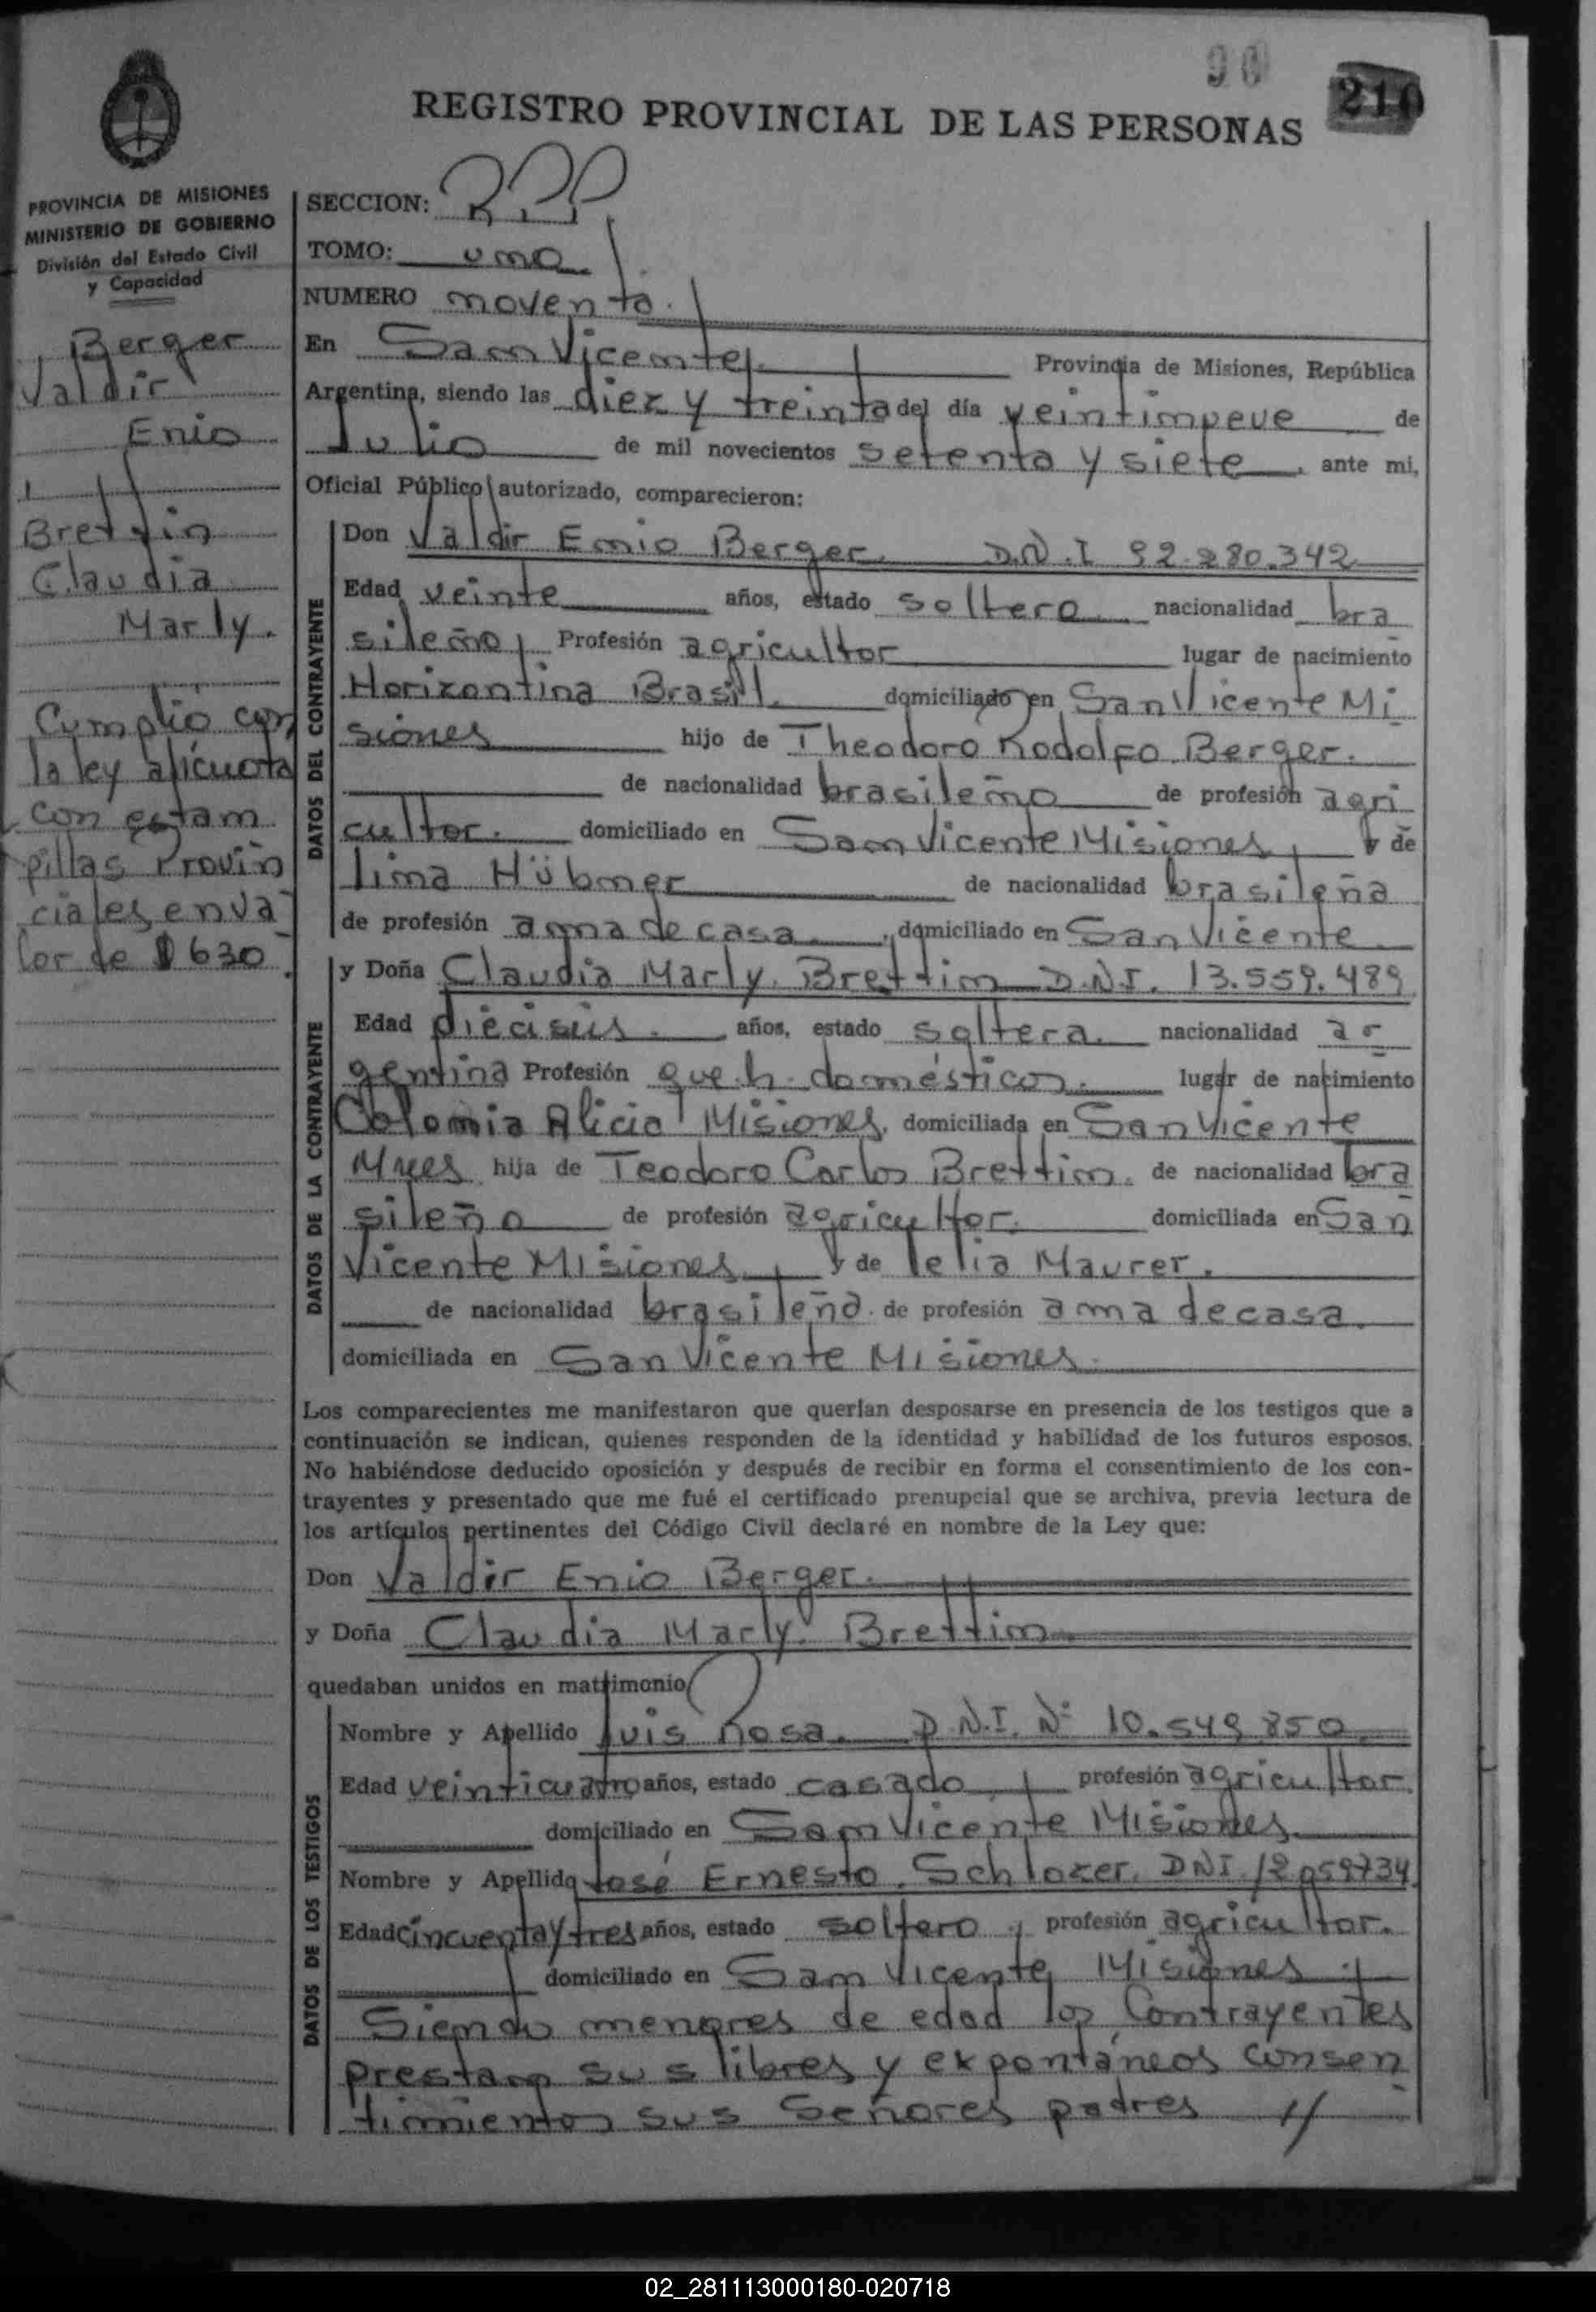 90 210
REGISTRO PROVINCIAL DE LAS PERSONAS
PROVINCIA DE MISIONES
MINISTERIO DE GOBIERNO
División del Estado Civil
y Capacidad
Berger
Valdir
Enio
y
Brettin
Claudia
Marly.
Cumplió con
la ley alícuota
con estam
pillas Provin
ciales en va
lor de $ 630.
SECCION:
TOMO: uno
NUMERO noventa.
En San Vicente, Provincia de Misiones, República
Argentina, siendo las diez y treinta del día veintinueve de
Julio de mil novecientos setenta y siete, ante mi,
Oficial Público autorizado, comparecieron:
DATOS DEL CONTRAYENTE
Don Valdir Enio Berger. D.N.I 92.280.342
Edad veinte años, estado soltero nacionalidad bra
sileño, Profesión agricultor lugar de nacimiento
Horizontina Brasil. domiciliado en San Vicente Mi
siones hijo de Theodoro Rodolfo Berger.
de nacionalidad brasileño de profesión agri
cultor. domiciliado en San Vicente Misiones, y de
Lina Hübner de nacionalidad brasileña
de profesión ama de casa, domiciliado en San Vicente
DATOS DE LA CONTRAYENTE
y Doña Claudia Marly. Brettin D.N.I. 13.559.489
Edad dieciséis. años, estado soltera. nacionalidad ar
gentina Profesión queh. domésticos. lugar de nacimiento
Colonia Alicia Misiones, domiciliada en San Vicente
Mnes hija de Teodoro Carlos Brettin. de nacionalidad bra
sileño de profesión agricultor. domiciliada en San
Vicente Misiones, y de Lelia Maurer.
de nacionalidad brasileña. de profesión ama de casa.
domiciliada en San Vicente Misiones.
Los comparecientes me manifestaron que querían desposarse en presencia de los testigos que a
continuación se indican, quienes responden de la identidad y habilidad de los futuros esposos.
No habiéndose deducido oposición y después de recibir en forma el consentimiento de los con-
trayentes y presentado que me fué el certificado prenupcial que se archiva, previa lectura de
los artículos pertinentes del Código Civil declaré en nombre de la Ley que:
Don Valdir Enio Berger.
y Doña Claudia Marly. Brettin
quedaban unidos en matrimonio
DATOS DE LOS TESTIGOS
Nombre y Apellido Luis Rosa. D.N.I. Nº 10.549.850
Edad veinticuatro años, estado casado, profesión agricultor
domiciliado en San Vicente Misiones
Nombre y Apellido José Ernesto. Schlozer. DNI.
Edad cincuenta y tres años, estado soltero, profesión agricultor.
domiciliado en San Vicente, Misiones
Siendo menores de edad los contrayentes
prestan sus libres y expontáneos consen
timientos sus Señores padres //
02_281113000180-020718